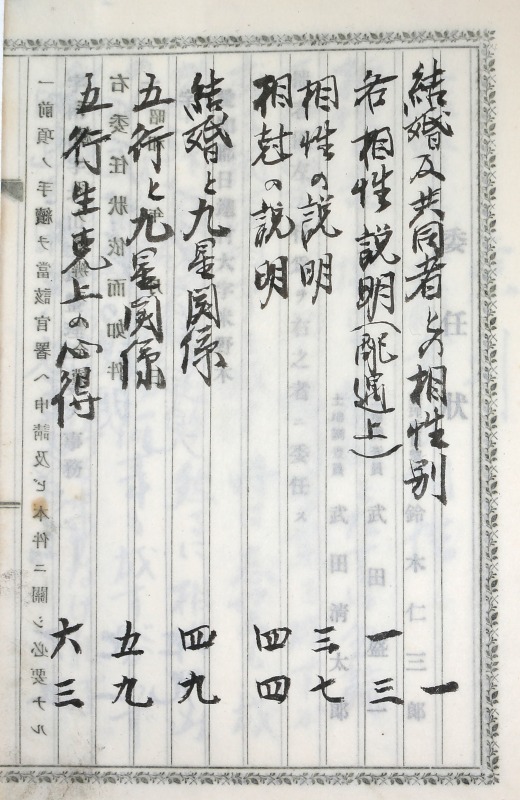 結婚及共同者との相性別 一
各相性説明(配遇上) 一三
相性の説明 三七
相尅の説明 四四
結婚と九星関係 四九
五行と九星関係 五九
五行生克上の心得 六三
委任状
鈴木仁三郎
武田盛一
武田清太郎
右之者ニ委任ス
右委任状依而如件
一前項ノ手續ヲ當該官署ヘ申請及ビ本件ニ關シ必要ナル
事務